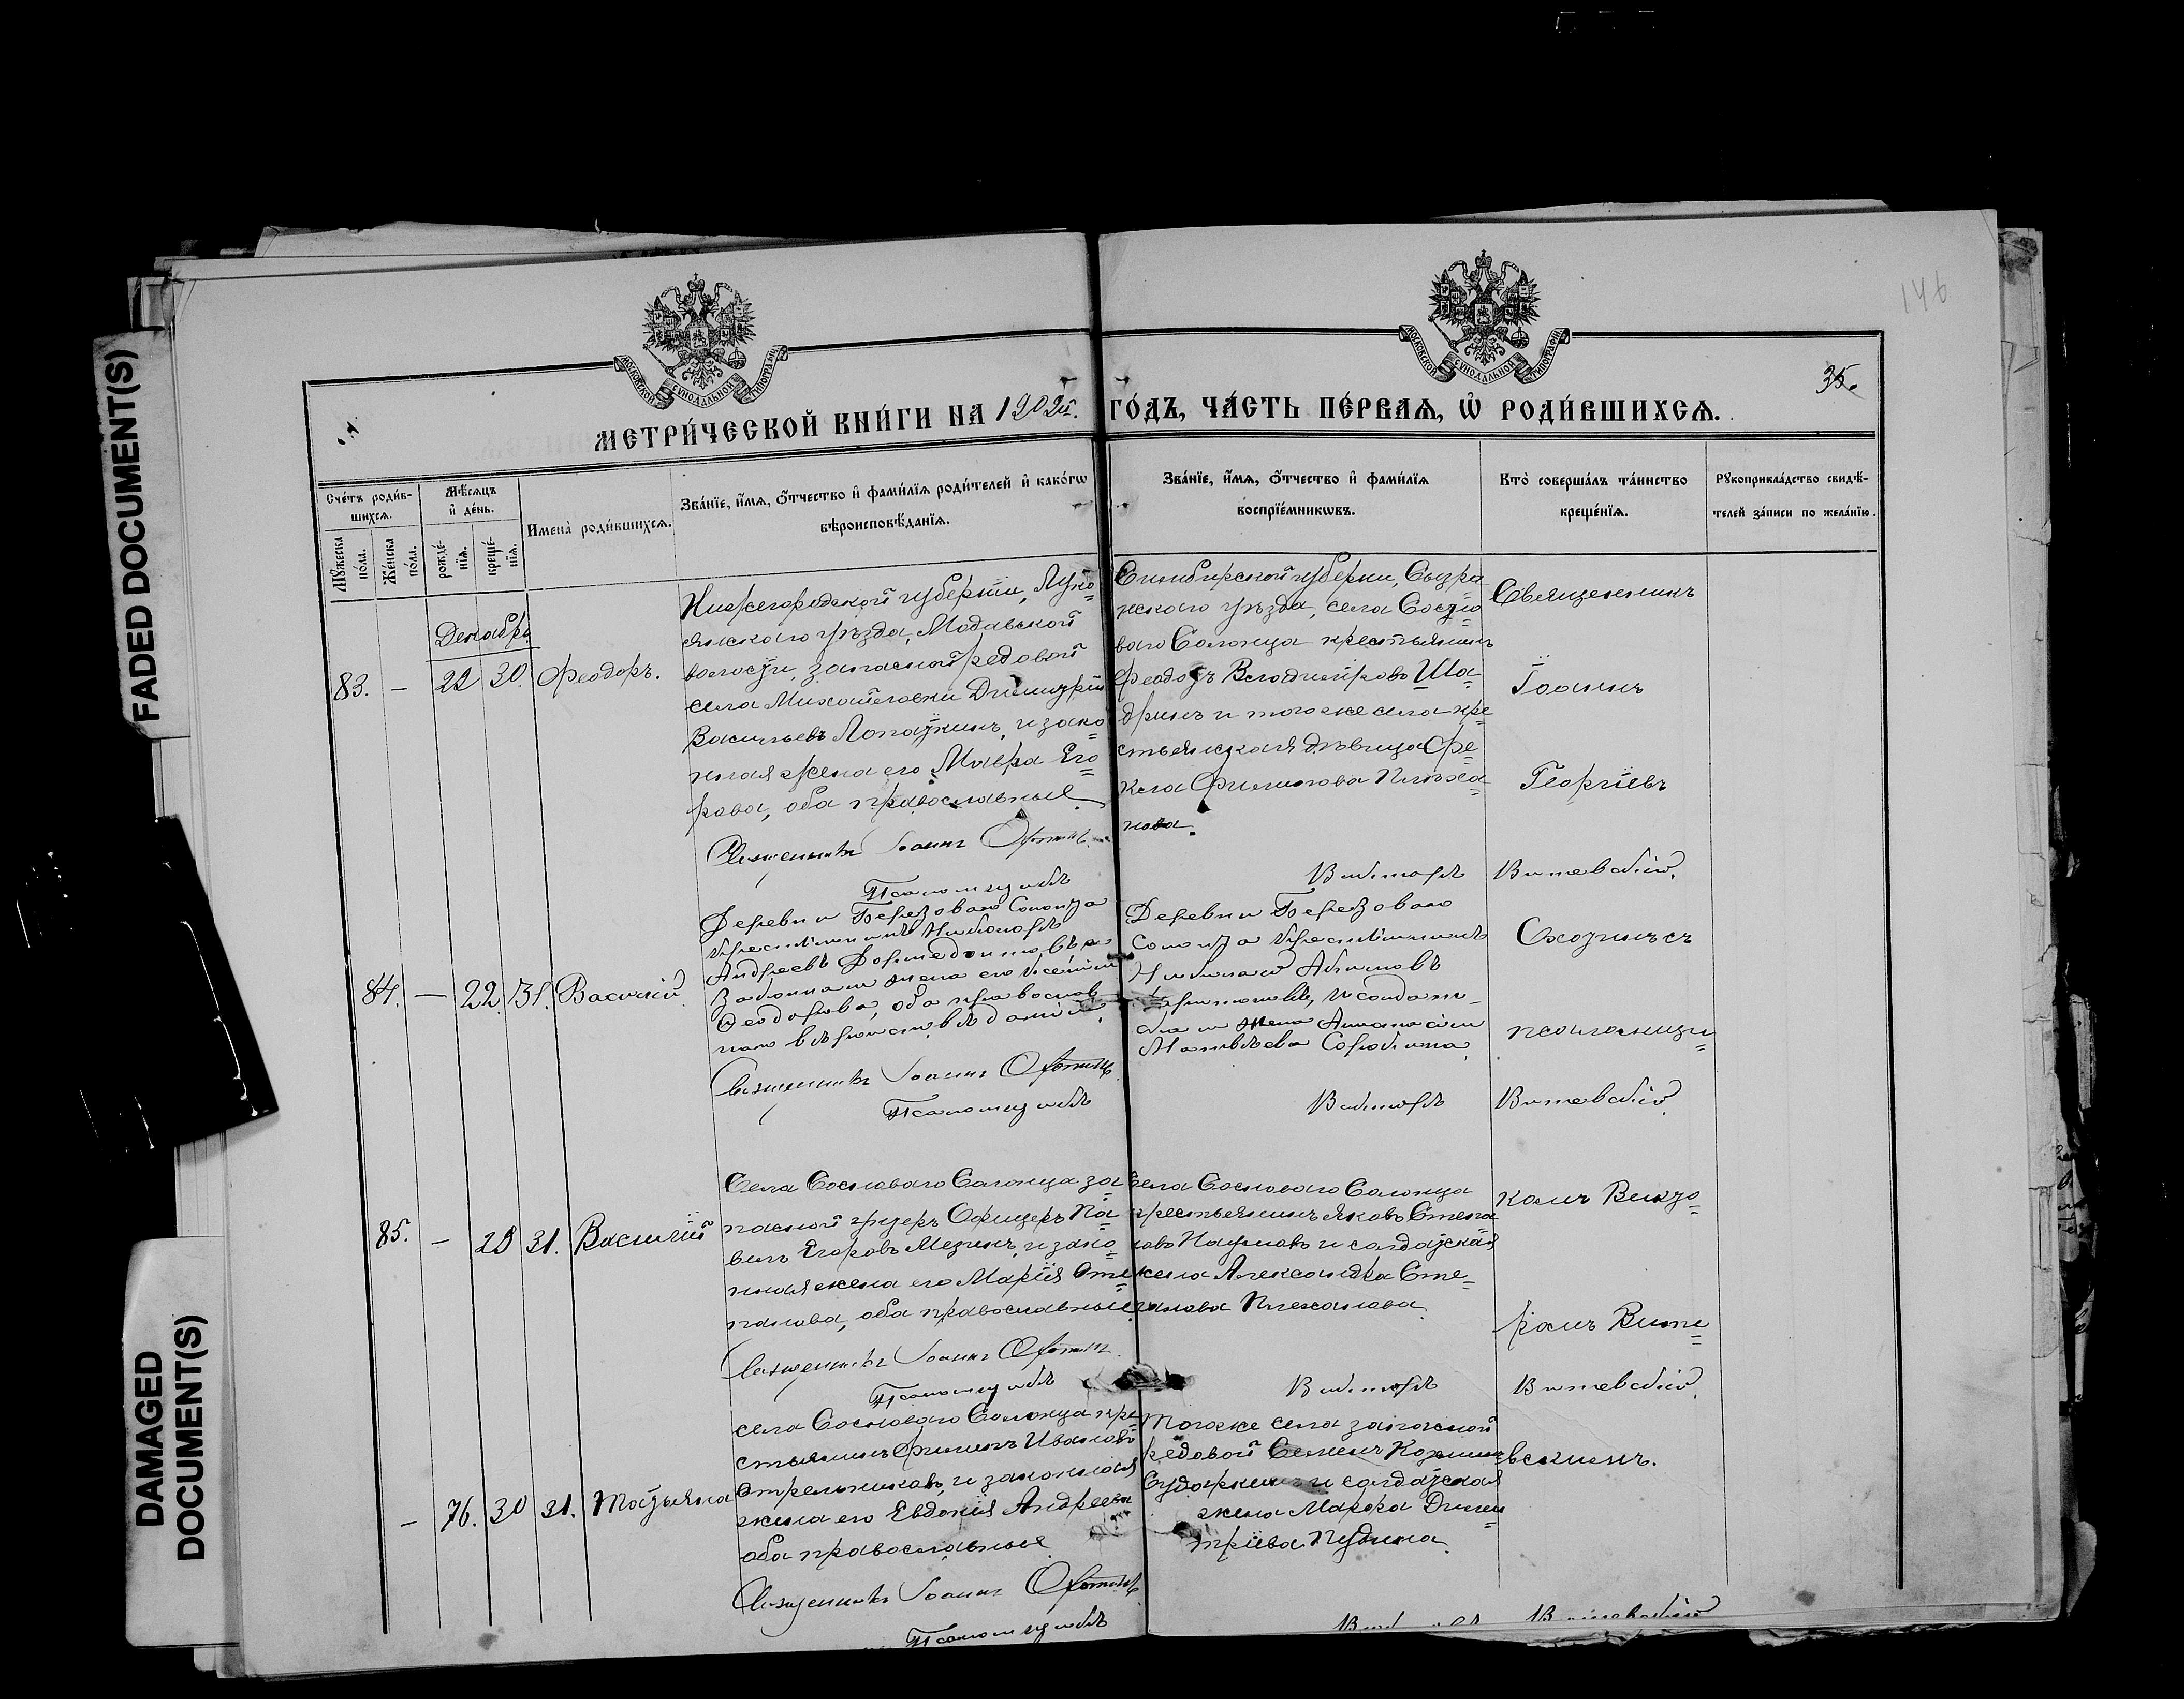 FADED DOCUMENT(S)
DAMAGED
DOCUMENT(S)
146
35.
МОСКОВСКОЙ СУНОДАЛЬНОЙ ТИПОГРАФІИ
МОСКОВСКОЙ СУНОДАЛЬНОЙ ТИПОГРАФІИ
МЕТРИ́ЧЕСКОЙ КНИ́ГИ НА 1902й. ГО́ДЪ, ЧА́СТЬ ПЕ́РВАѦ, Ѡ҆ РОДИ́ВШИХСѦ.
Сче́тъ роди́в-
шихсѧ.
Мꙋ́жеска
по́ла.
Же́нска
по́ла.
Мѣ́сѧцъ
и҆ де́нь.
рожде́-
нїѧ.
креще́-
нїѧ.
Имена̀ роди́вшихсѧ.
Зва́нїе, и҆́мѧ, ѻ҆́тчество и҆ фами́лїѧ роди́телей и҆ како́гѡ
вѣроисповѣ́данїѧ.
Зва́нїе, и҆́мѧ, ѻ҆́тчество и҆ фами́лїѧ
воспрїе́мникѡвъ.
Кто̀ соверша́лъ та́инство
креще́нїѧ.
Рꙋкоприкла́дство свидѣ́-
телей за́писи по жела́нїю.
Декабрь
83. — 22 30. Феодоръ.
Нижегородской губерніи, Луко=
янскаго уѣзда, Мадаевской
волости, запасной рядовой
села Михайловки Димитрій
Васильевъ Лопаткинъ, и зако=
нная жена его Мавра Его=
рова, оба православные.
Священникъ Іоаннъ
Псаломщикъ
Симбирской губерніи, Сызра=
нскаго уѣзда, села Сосно
ваго Солонца крестьянинъ
Феодоръ Владиміровъ Ша=
дринъ и того же села кре=
стьянская дѣвица Фе=
кла Филипова Плеха=
нова.
Викторъ Витевскій.
Священникъ
Іоаннъ
Георгіевъ
84. — 22. 31. Василій.
Деревни Березоваго Солонца
крестьянинъ Никаноръ
Андреевъ
Законная жена его
Феодорова, оба православ
наго вѣроисповѣданія.
Священникъ Іоаннъ
Псаломщикъ
Деревни Березоваго
Солонца крестьянинъ
Николай
и солдат-
ская жена Анастасія
Матвѣева Сорокина.
Викторъ Витевскій.
псаломщи=
85. — 28 31. Василій
Села Сосноваго Солонца за=
пасной унтеръ Офицеръ Па=
велъ Егоровъ Мезинъ, и зако=
нная жена его Марія Сте=
панова, оба православные.
Священникъ Іоаннъ
Псаломщикъ
Села Сосноваго Солонца
крестьянинъ Яковъ Степа=
новъ Наумовъ и солдатская
жена Александра Сте=
панова Плеханова.
Викторъ Витевскій.
комъ Викто=
ромъ Вите=
— 76. 30 31. Татьяна
села Сосноваго Солонца кре=
стьянинъ Филипъ Ивановъ
Стрельниковъ, и законная
жена его Евдокія Андреева
оба православные
Священникъ Іоаннъ
Псаломщикъ
Того же села запасной
рядовой Семенъ Козмин
Сударкинъ и солдатская
жена Марфа Дими=
тріева Пудина.
вскимъ.
Викторъ Витевскій